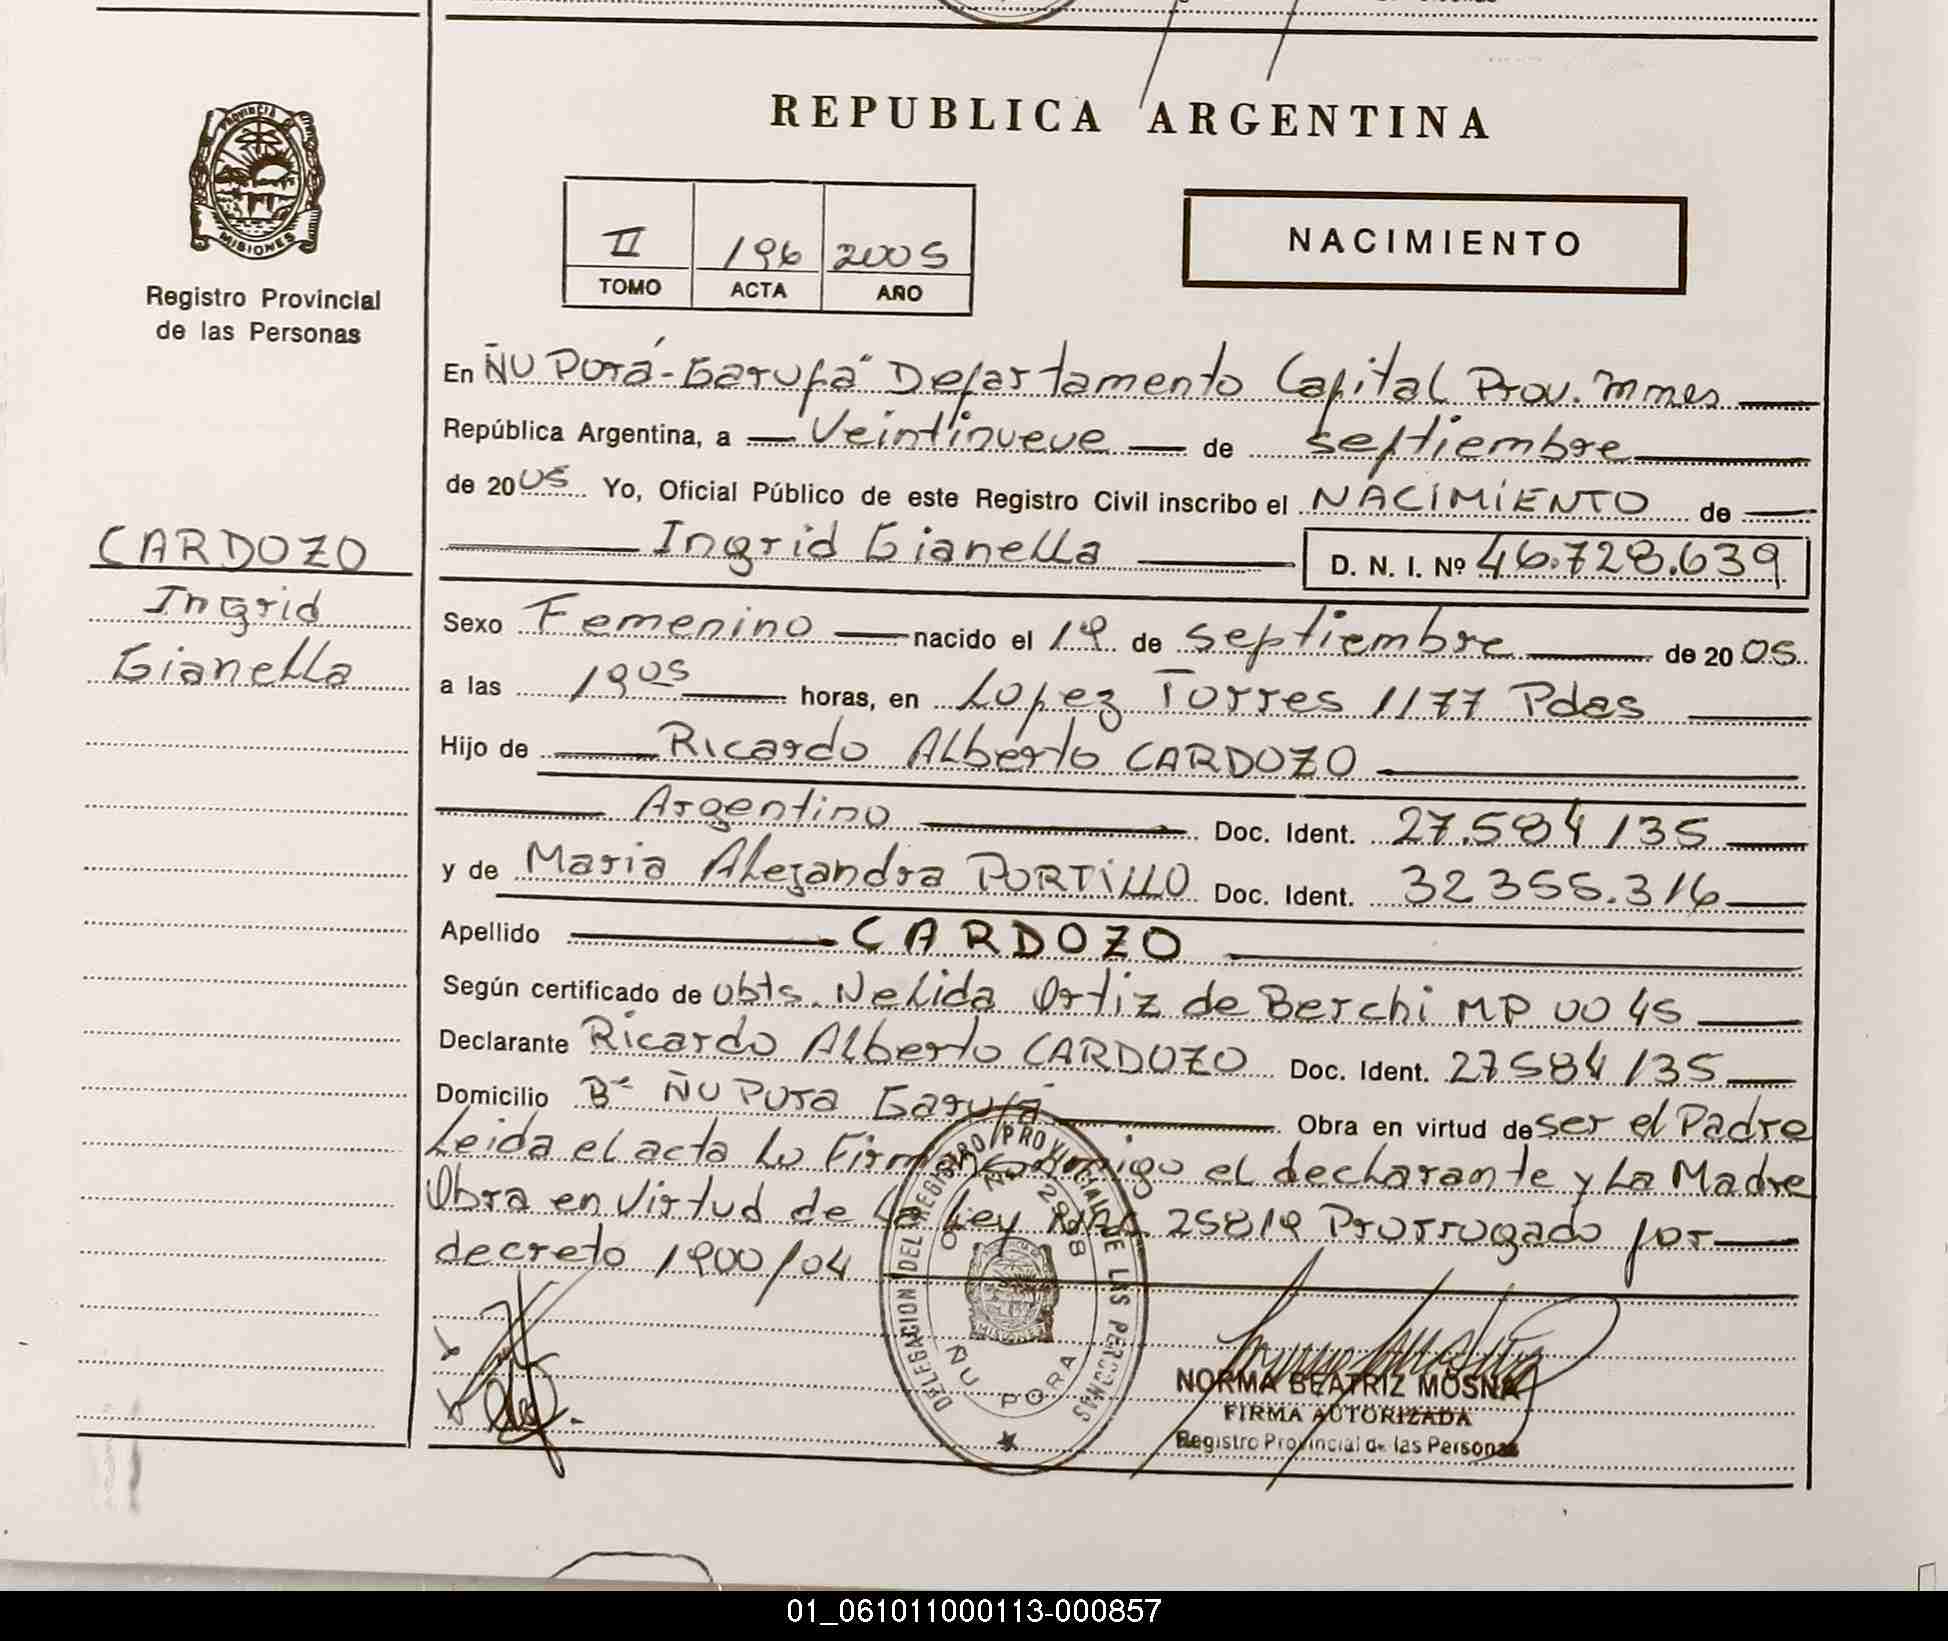 REPUBLICA ARGENTINA
PROVINCIA
MISIONES
Registro Provincial
de las Personas
II 196 2005
TOMO ACTA AÑO
NACIMIENTO
CARDOZO
Ingrid
Gianella
En Ñu Porá - Garupá Departamento Capital Prov. Mnes
República Argentina, a Veintinueve de septiembre
de 2005 Yo, Oficial Público de este Registro Civil inscribo el NACIMIENTO de
Ingrid Gianella D. N. I. Nº 46.728.639
Sexo Femenino nacido el 19 de septiembre de 2005
a las 19 05 horas, en Lopez Torres 1177 Pdas
Hijo de Ricardo Alberto CARDOZO
Argentino Doc. Ident. 27.584 135
y de Maria Alejandra PORTILLO Doc. Ident. 32 355.316
Apellido CARDOZO
Según certificado de Obts. Nelida Ortiz de Berchi MP 0045
Declarante Ricardo Alberto CARDOZO Doc. Ident. 27584 135
Domicilio Bº Ñu Pora Garupá Obra en virtud de ser el Padre
Leida el acta Lo Firman conmigo el declarante y La Madre
Obra en Virtud de La Ley 25819 Prorrogado por
decreto 1900/04
DELEGACION DEL REGISTRO PROVINCIAL DE LAS PERSONAS
MISIONES
ÑU PORA
NORMA BEATRIZ MOSNA
FIRMA AUTORIZADA
Registro Provincial de las Personas
01_061011000113-000857